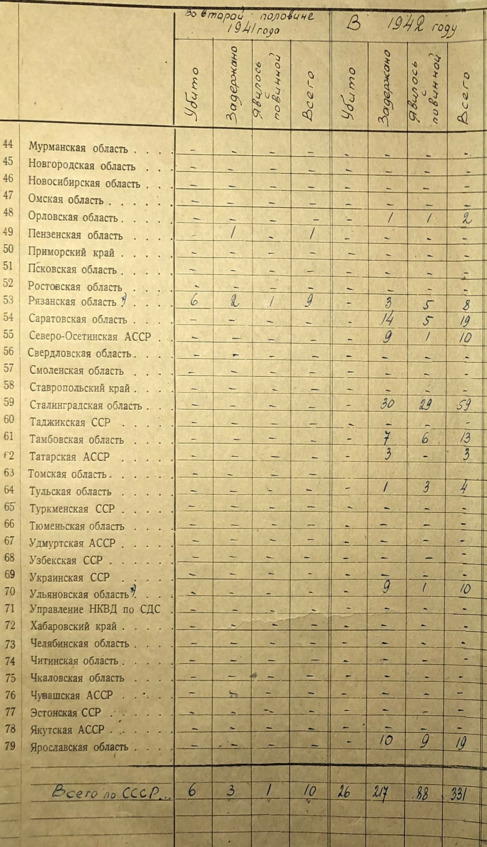 Во второй половине 1941 года В 1942 году
Убито Задержано Явилось с повинной Всего Убито Задержано Явилось с повинной Всего
44 Мурманская область . . . - - - - - - - -
45 Новгородская область . . - - - - - - - -
46 Новосибирская область . . - - - - - - - -
47 Омская область . . . . . - - - - - - - -
48 Орловская область . . . . - - - - - 1 1 2
49 Пензенская область . . . - 1 - 1 - - - -
50 Приморский край . . . . - - - - - - - -
51 Псковская область . . . . - - - - - - - -
52 Ростовская область . . . - - - - - - - -
53 Рязанская область*) . . . 6 2 1 9 - 3 5 8
54 Саратовская область . . . - - - - - 14 5 19
55 Северо-Осетинская АССР . - - - - - 9 1 10
56 Свердловская область . . . - - - - - - - -
57 Смоленская область . . . - - - - - - - -
58 Ставропольский край . . . - - - - - - - -
59 Сталинградская область . . - - - - - 30 29 59
60 Таджикская ССР . . . . - - - - - - - -
61 Тамбовская область . . . - - - - - 7 6 13
62 Татарская АССР . . . . - - - - - 3 - 3
63 Томская область . . . . - - - - - - - -
64 Тульская область . . . . - - - - - 1 3 4
65 Туркменская ССР . . . . - - - - - - - -
66 Тюменьская область . . . - - - - - - - -
67 Удмуртская АССР . . . . - - - - - - - -
68 Узбекская ССР . . . . . - - - - - - - -
69 Украинская ССР . . . . - - - - - - - -
70 Ульяновская область*) . . - - - - - 9 1 10
71 Управление НКВД по СДС . - - - - - - - -
72 Хабаровский край . . . . - - - - - - - -
73 Челябинская область . . . - - - - - - - -
74 Читинская область . . . . - - - - - - - -
75 Чкаловская область . . . - - - - - - - -
76 Чувашская АССР . . . . - - - - - - - -
77 Эстонская ССР . . . . . - - - - - - - -
78 Якутская АССР . . . . . - - - - - - - -
79 Ярославская область . . . - - - - - 10 9 19
Всего по СССР... 6 3 1 10 26 217 88 331